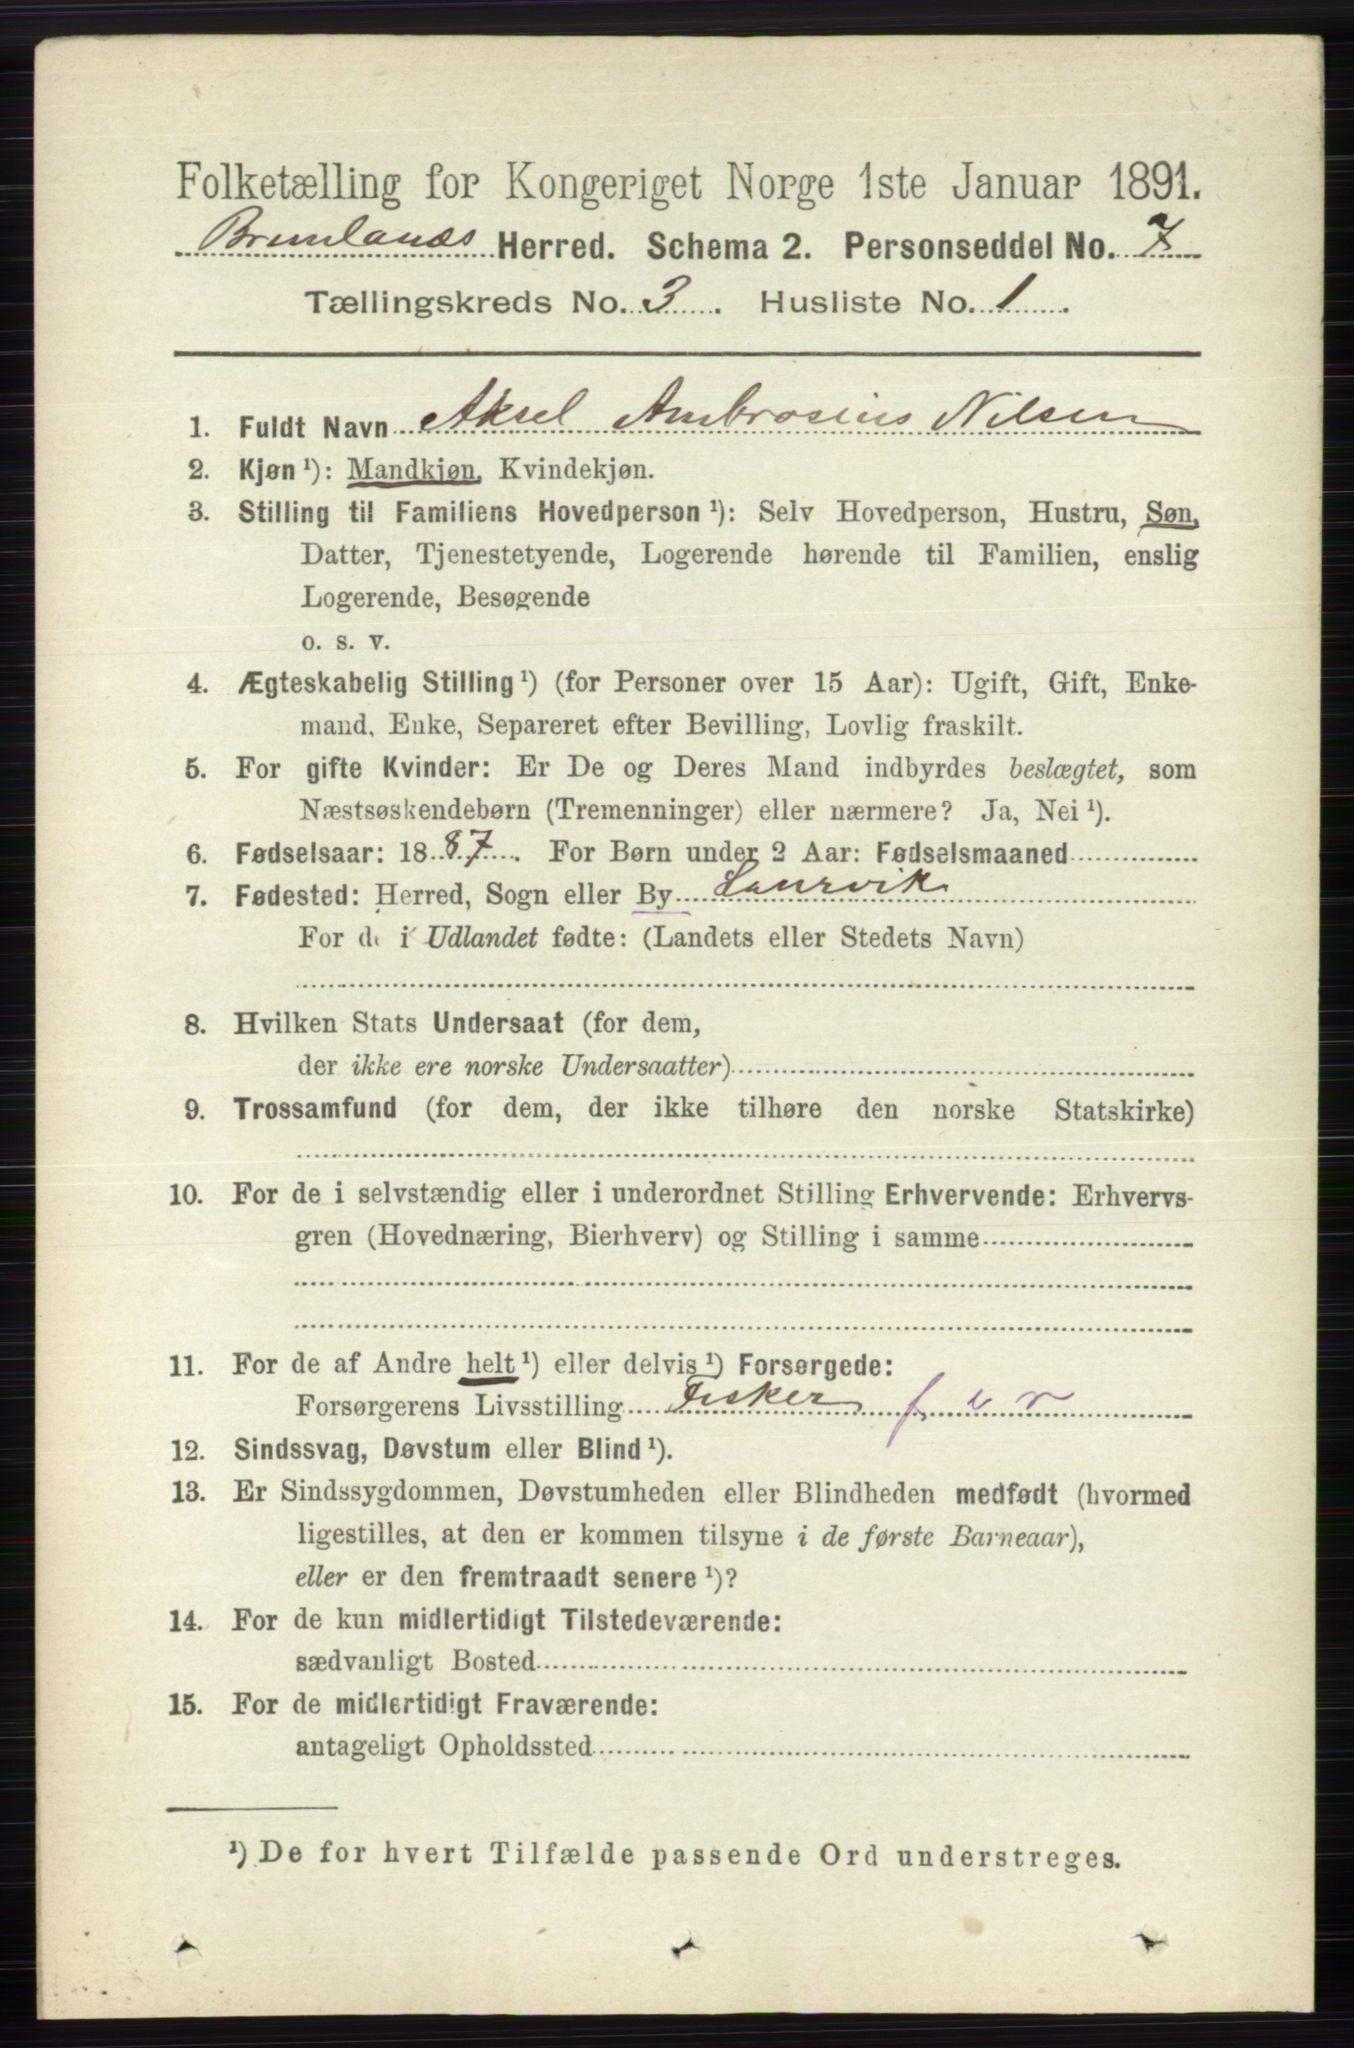 Folketælling for Kongeriget Norge 1ste Januar 1891.
Brunlanæs Herred. Schema 2. Personseddel No. 7
Tællingskreds No. 3. Husliste No. 1.
1. Fuldt Navn Aksel Ambrosius Nilsen
2. Kjøn ¹): Mandkjøn, Kvindekjøn.
3. Stilling til Familiens Hovedperson ¹): Selv Hovedperson, Hustru, Søn,
Datter, Tjenestetyende, Logerende hørende til Familien, enslig
Logerende, Besøgende
o. s. v.
4. Ægteskabelig Stilling ¹) (for Personer over 15 Aar): Ugift, Gift, Enke-
mand, Enke, Separeret efter Bevilling, Lovlig fraskilt.
5. For gifte Kvinder: Er De og Deres Mand indbyrdes beslægtet, som
Næstsøskendebørn (Tremenninger) eller nærmere? Ja, Nei ¹).
6. Fødselsaar: 1887. For Børn under 2 Aar: Fødselsmaaned
7. Fødested: Herred, Sogn eller By Laurvik
For de i Udlandet fødte: (Landets eller Stedets Navn)
8. Hvilken Stats Undersaat (for dem,
der ikke ere norske Undersaatter)
9. Trossamfund (for dem, der ikke tilhøre den norske Statskirke)
10. For de i selvstændig eller i underordnet Stilling Erhvervende: Erhvervs-
gren (Hovednæring, Bierhverv) og Stilling i samme
11. For de af Andre helt ¹) eller delvis ¹) Forsørgede:
Forsørgerens Livsstilling Fisker
12. Sindssvag, Døvstum eller Blind ¹).
13. Er Sindssygdommen, Døvstumheden eller Blindheden medfødt (hvormed
ligestilles, at den er kommen tilsyne i de første Barneaar),
eller er den fremtraadt senere ¹)?
14. For de kun midlertidigt Tilstedeværende:
sædvanligt Bosted
15. For de midlertidigt Fraværende:
antageligt Opholdssted
¹) De for hvert Tilfælde passende Ord understreges.